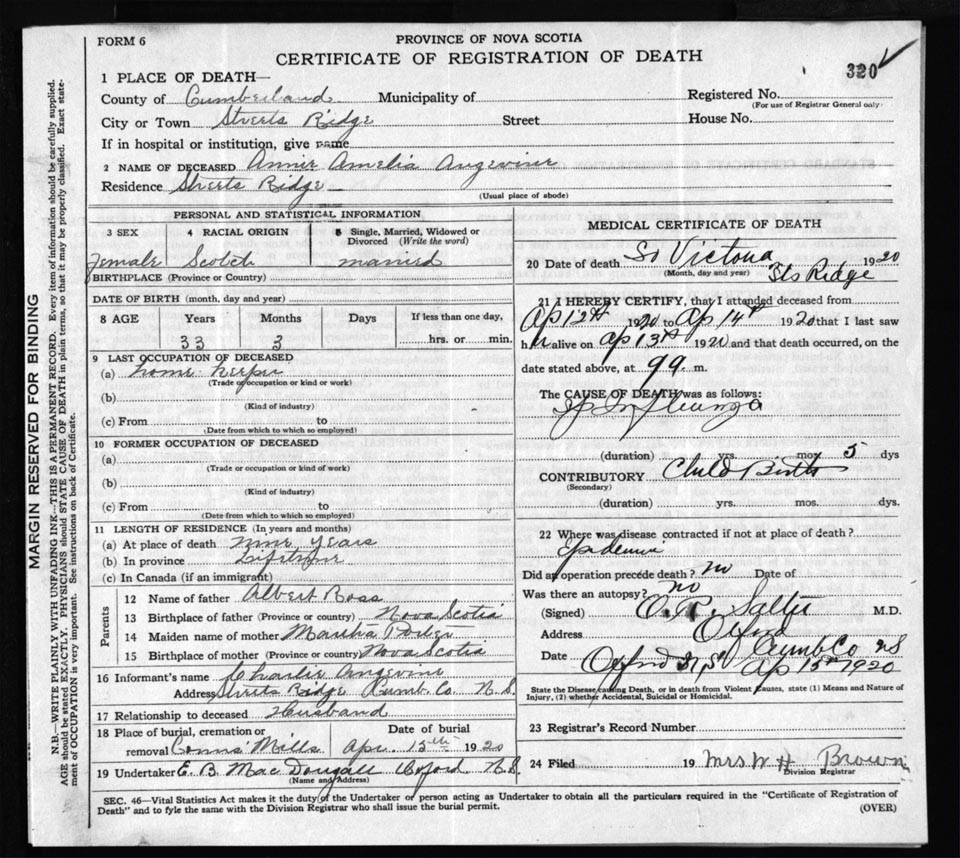 FORM 6
PROVINCE OF NOVA SCOTIA
CERTIFICATE OF REGISTRATION OF DEATH
320
1 PLACE OF DEATH—
County of Cumberland Municipality of Registered No.
(For use of Registrar General only)
City or Town Streets Ridge Street House No.
If in hospital or institution, give name
2 NAME OF DECEASED Annie Amelia Angevine
Residence Streets Ridge
(Usual place of abode)
PERSONAL AND STATISTICAL INFORMATION
3 SEX 4 RACIAL ORIGIN 5 Single, Married, Widowed or Divorced (Write the word)
female Scotch married
BIRTHPLACE (Province or Country)
DATE OF BIRTH (month, day and year)
8 AGE Years Months Days If less than one day,
33 3 hrs. or min.
9 LAST OCCUPATION OF DECEASED
(a) home keeper
(Trade or occupation or kind or work)
(b)
(Kind of industry)
(c) From to
(Date from which to which so employed)
10 FORMER OCCUPATION OF DECEASED
(a)
(Trade or occupation or kind of work)
(b)
(Kind of industry)
(c) From to
(Date from which to which so employed)
11 LENGTH OF RESIDENCE (In years and months)
(a) At place of death nine years
(b) In province Lifetime
(c) In Canada (if an immigrant)
Parents
12 Name of father Albert Ross
13 Birthplace of father (Province or country) Nova Scotia
14 Maiden name of mother Martha Porter
15 Birthplace of mother (Province or country) Nova Scotia
16 Informant's name Charlie Angevine
Address Streets Ridge Cumb. Co. N.S.
17 Relationship to deceased Husband
18 Place of burial, cremation or removal Conns Mills Date of burial Apr. 15th 1920
19 Undertaker E. B. MacDougall Oxford N.S.
(Name and Address)
MEDICAL CERTIFICATE OF DEATH
20 Date of death So Victoria 1920
(Month, day and year) Sts Ridge
21 I HEREBY CERTIFY, that I attended deceased from
Ap 12th 1920 to Ap 14th 1920 that I last saw
h alive on Ap 13th 1920 and that death occurred, on the
date stated above, at 9 m.
The CAUSE OF DEATH was as follows:
Sp Influenza
(duration) yrs. mos. 5 dys
CONTRIBUTORY Child Birth
(Secondary)
(duration) yrs. mos. dys.
22 Where was disease contracted if not at place of death?
Epidemic
Did an operation precede death? no Date of
Was there an autopsy? no
(Signed) Salter M.D.
Address Oxford
Cumb Co NS
Date Oxford Ap 15th 1920
State the Disease causing Death, or in death from Violent Causes, state (1) Means and Nature of
Injury, (2) whether Accidental, Suicidal or Homicidal.
23 Registrar's Record Number
24 Filed 19 Mrs. W H Brown
Division Registrar
SEC. 46—Vital Statistics Act makes it the duty of the Undertaker or person acting as Undertaker to obtain all the particulars required in the "Certificate of Registration of
Death" and to fyle the same with the Division Registrar who shall issue the burial permit.
(OVER)
MARGIN RESERVED FOR BINDING
N.B.—WRITE PLAINLY WITH UNFADING INK—THIS IS A PERMANENT RECORD. Every item of information should be carefully supplied.
AGE should be stated EXACTLY. PHYSICIANS should STATE CAUSE OF DEATH in plain terms, so that it may be properly classified. Exact state-
ment of OCCUPATION is very important. See instructions on back of Certificate.